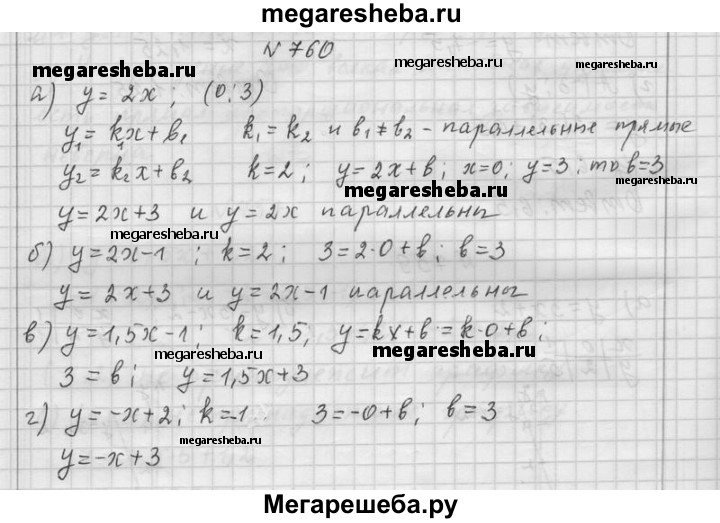 megaresheba.ru
N 760
megaresheba.ru
а) y = 2x ; (0; 3)
y₁ = k₁x + b₁ k₁ = k₂ и b₁ ≠ b₂ - параллельные прямые
y₂ = k₂x + b₂ k = 2 ; y = 2x + b ; x = 0; y = 3 ; то b = 3
megaresheba.ru
y = 2x + 3 и y = 2x параллельны
megaresheba.ru
б) y = 2x - 1 ; k = 2 ; 3 = 2 · 0 + b ; b = 3
y = 2x + 3 и y = 2x - 1 параллельны
в) y = 1,5x - 1 ; k = 1,5 ; y = kx + b = k · 0 + b ;
megaresheba.ru megaresheba.ru
3 = b ; y = 1,5x + 3
г) y = -x + 2 ; k = -1 3 = -0 + b ; b = 3
megaresheba.ru
y = -x + 3
Мегарешеба.ру